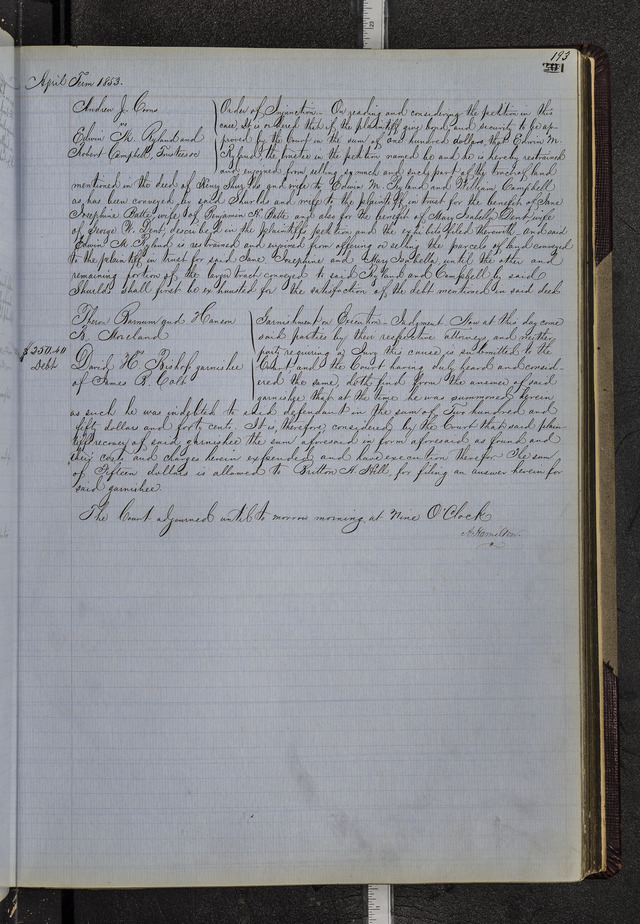 193
April Term 1853.
Andrew J. Coons
vs
Edwin M. Ryland and
Robert Campbell, Trustees &c
Order of Injunction. On reading and considering the petition in this
case, It is ordered that if the plaintiff give bond, and security to be ap-
proved by the Court in the sum of one hundred dollars, that Edwin M.
Ryland, the trustee in the petition named be and he is hereby restrained
and enjoined from selling so much and such part of the tract of land
mentioned in the deed of Henry Shurlds and wife to Edwin M. Ryland and William Campbell
as has been conveyed by said Shurlds and wife to the plaintiff, in trust for the benefit of Jane
Josephine Batte, wife of Benjamin H. Batte and also for the benefit of Mary Isabella Dent, wife
of George W. Dent, described in the plaintiffs petition and the exhibits filed therewith, and said
Edwin M. Ryland is restrained and enjoined from offering or selling the parcels of land conveyed
to the plaintiff in trust for said Jane Josephine and Mary Isabella, until the other and
remaining portion of the larger tract conveyed to said Ryland and Campbell by said
Shurlds shall first be exhausted for the satisfaction of the debt mentioned in said deed
Theron Barnum and Hanson
B. Moreland
vs
David H. Bishop garnishee
of James B. Colt
$250.40
Debt
Garnishment on Execution. Judgment. Now at this day come
said parties by their respective attorneys and neither
party requiring a Jury this cause is submitted to the
Court, and the Court having duly heard and consid-
ered the same, doth find from the answer of said
garnishee that at the time he was summoned herein
as such he was indebted to said defendant in the sum of Two hundred and
fifty dollars and forty cents. It is, therefore, considered by the Court that said plain-
tiffs recover of said garnishee the sum aforesaid in form aforesaid as found and
their costs and charges herein expended, and have execution therefor. The sum
of Fifteen dollars is allowed to Britton A. Hill, for filing an answer herein for
said garnishee.
The Court adjourned until to morrow morning at Nine O'Clock
A. Hamilton.